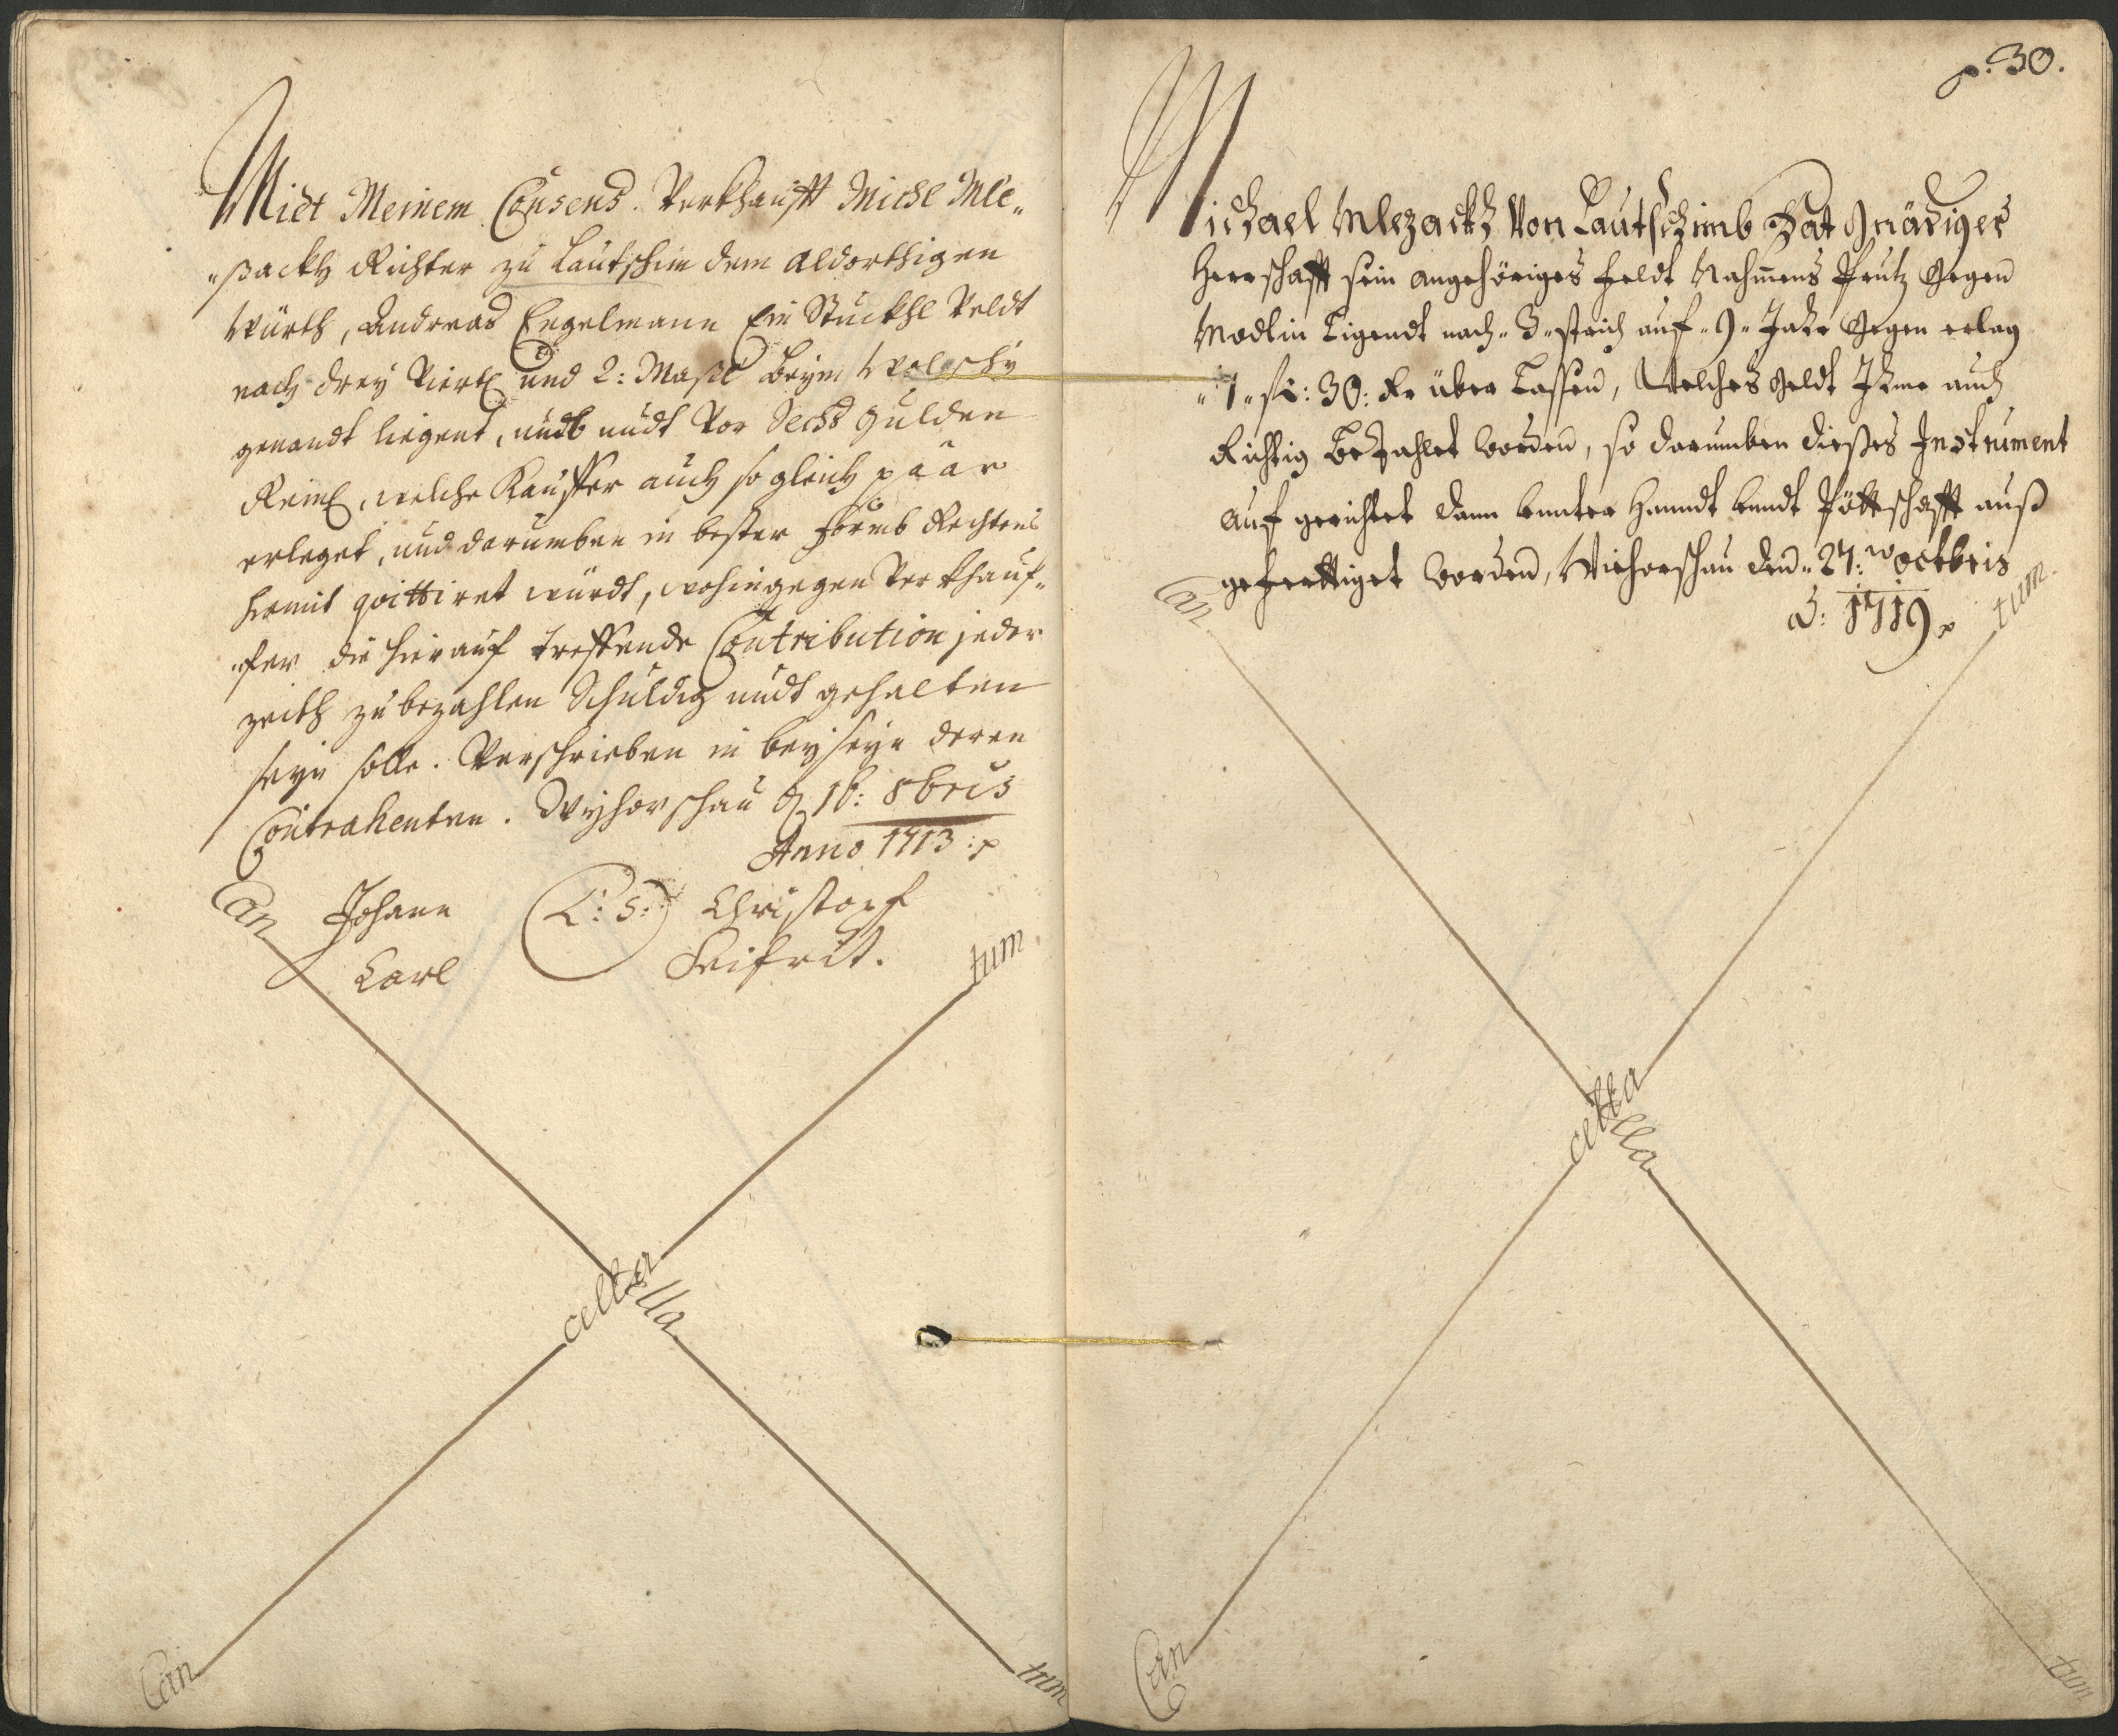 Miet Meinem Consens Verkhaufft Michl Mle„
„ßackh Richter zu Lautschim dem aldorthigen
Würth, Andreas Engelmann Ein Stuckhl Veldt
nach drey Viertl und 2: Maßl beym Wolschy
genandt liegent, undt vor Sechs gulden
Reinl, welche Kauffer auch so gleich paar
erleget, und darumben in bester formb Rechtens
hiemit quittiret würdt, wohingegen Verkhauf„
„fer die hierauf treffende Contribution jeder
zeith zu bezahlen Schuldig undt gehalten
seyn solle. Verschrieben in beyseyn deren
Contrahenten. Wyhorschau d 16: 8bris
Anno 1713 :p
Johann (L: S:) Christoph
Carl Seifrit.
Can tum
cella cella
Can tum
p: 30.
Michael Mlezackh Von Lautschimb Hat Gnädiger
Herrschafft sein angehöriges feldt Nahmens Prutz gegen
Modlin Ligendt nach „3„ strich auf „9„ Jahr gegen erlag
„1„ fl: 30: Kr über Lassen, Welches geldt Ihme auch
Richtig Bezahlet worden, so darumben dießes Instrument
auf gerichtet dann bunter Handt undt Pöttschafft auß
gefertiget worden, Wichorschau den „27: octbris
A: 1719 p
Can tum
cella cella
Can tum